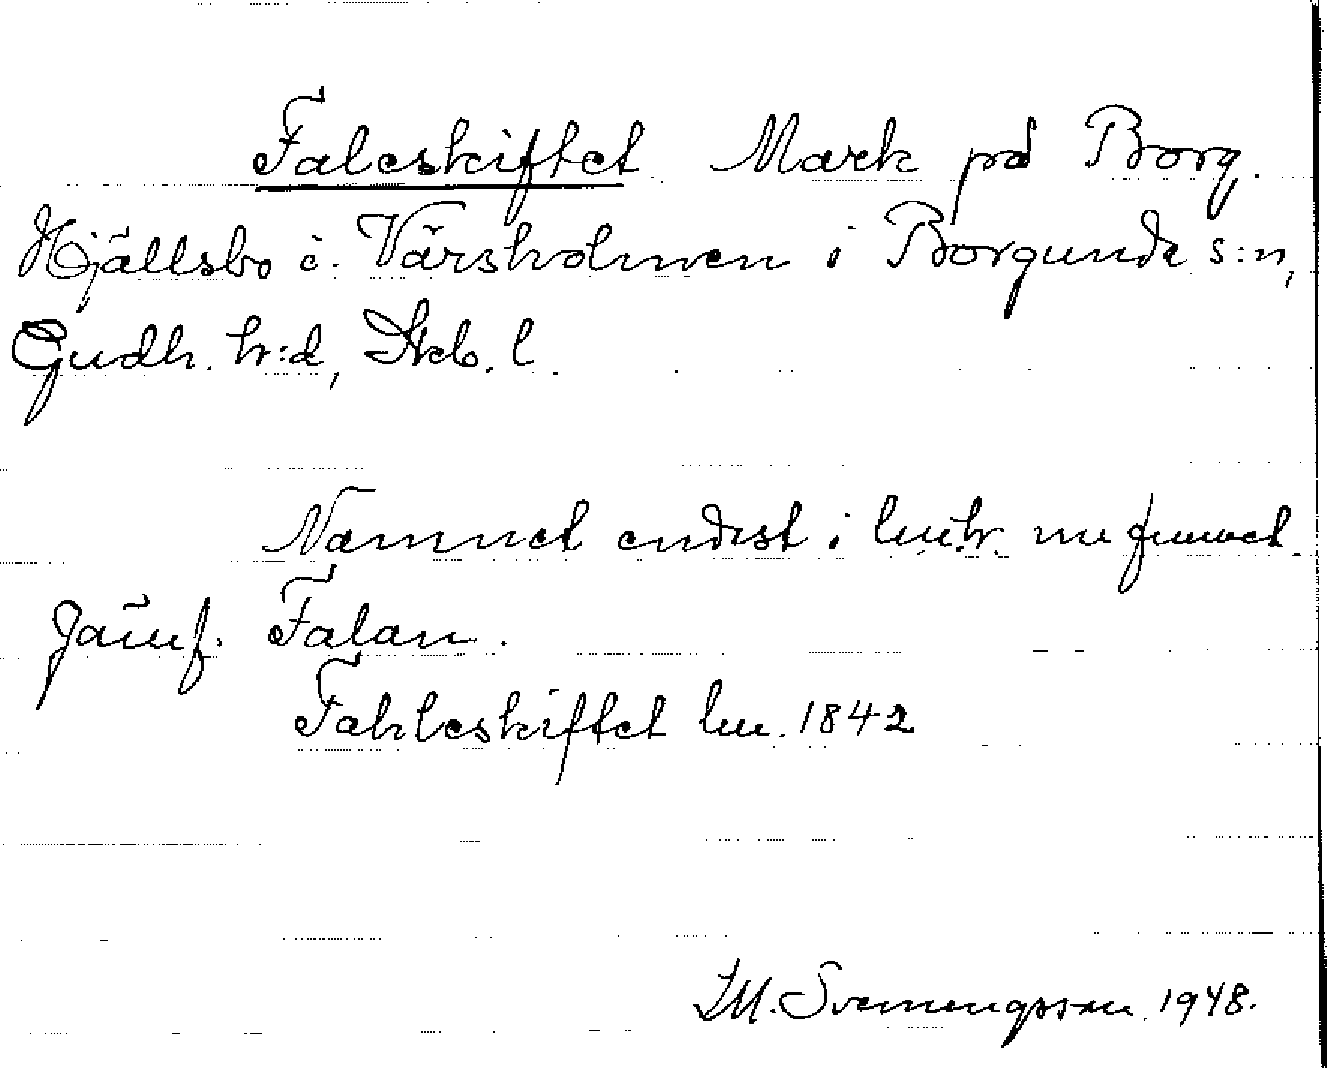 Faleskiftet Mark på Borg.
Hjällsbo i. Värsholmen i Borgunda s:n,
Gudh. h:d, Skb. l.
Namnet endast i lmtr
Jämf. Falan.
Fahleskiftet lm. 1842
I. M. Svenungsson 1948.